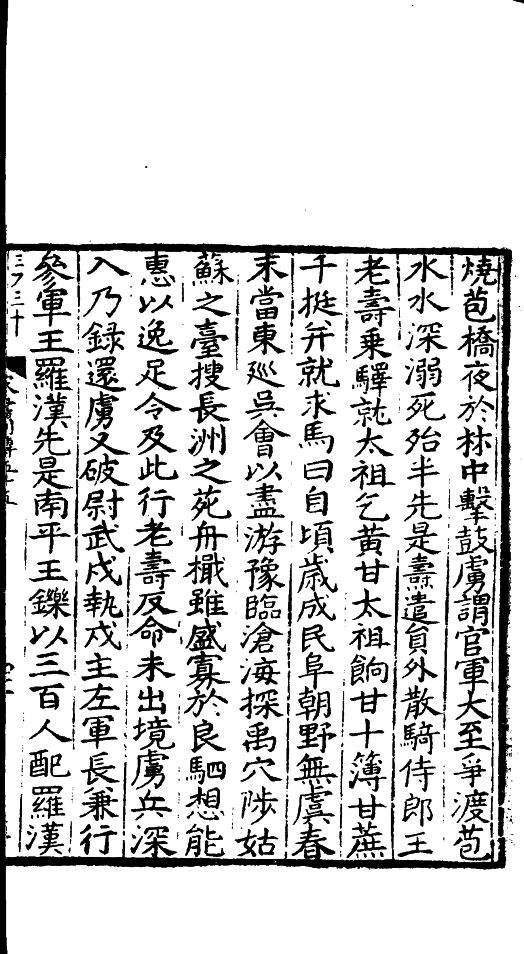 燒苞橋夜於林中擊鼓虜謂官軍大至爭渡苞
水水深溺死殆半先是燾遣員外散騎侍郎王
老壽乗驛就太祖乞黃甘太祖餉甘十簿甘蔗
千挺并就求馬曰自頃歲成民阜朝野無虞春
末當東巡吳會以盡游豫臨滄海探禹穴陟姑
蘇之臺搜長洲之苑舟檝雖盛寡於良駟想能
惠以逸足令及此行老壽反命未出境虜兵深
入乃録還虜又破尉武戍執戍主左軍長兼行
參軍王羅漢先是南平王鑠以三百人配羅漢